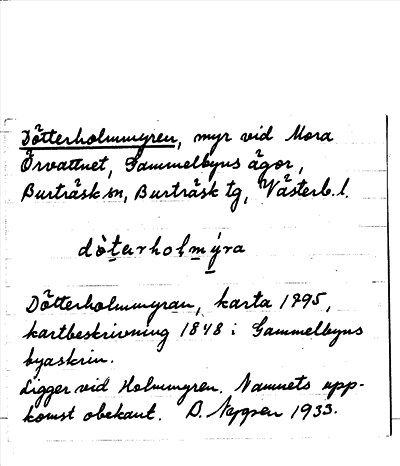 Dötterholmmyren, myr vid Mora
Örvattnet, Gammelbyns ägor,
Burträsk sn, Burträsk tg, Västerb. l.
dòtarholmýra
Dötterholmmyran, karta 1795,
kartbeskrivning 1848 i Gammelbyns
byaskrin.
Ligger vid Holmmyren. Namnets upp-
komst obekant. D. Nygren 1933.